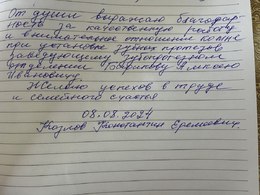 От души выражаю благодар-
ность за качественную работу
и внимательное отношение ко мне
при установке зубных протезов
заведующему зубопротезном
отделении Ивановичу.
Желаю успехов в труде
и семейного счастья
08.08.2024
Козлов Константин Еремеевич.